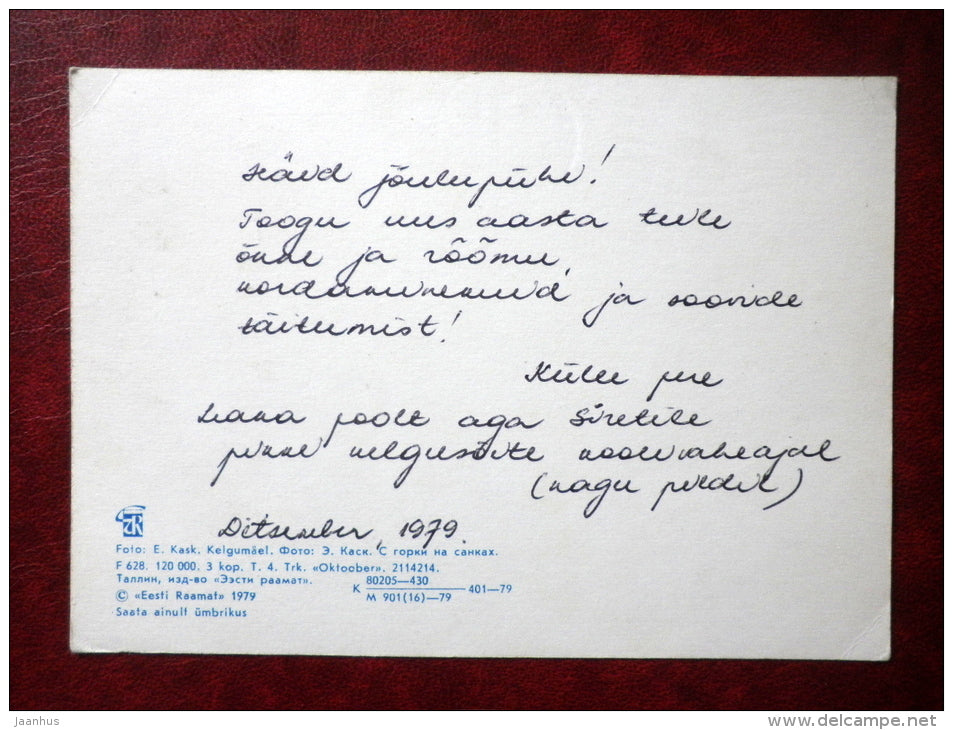 Häid jõulupühi!
Toogu uus aasta teile
õnne ja rõõmu,
kordaminekuid ja soovide
täitumist!
Külli pere
Liana poolt aga Siretile
pikki kelgusõite koolivaheajal
(nagu pildil)
Detsember, 1979.
Foto: E. Kask. Kelgumäel. Фото: Э. Каск. С горки на санках.
F 628. 120 000. 3 kop. T. 4. Trk. «Oktoober». 2114214.
Таллин, изд-во «Ээсти раамат».
К 80205—430
М 901(16)—79
401—79
© «Eesti Raamat» 1979
Saata ainult ümbrikus
Jaanhus
www.delcampe.net